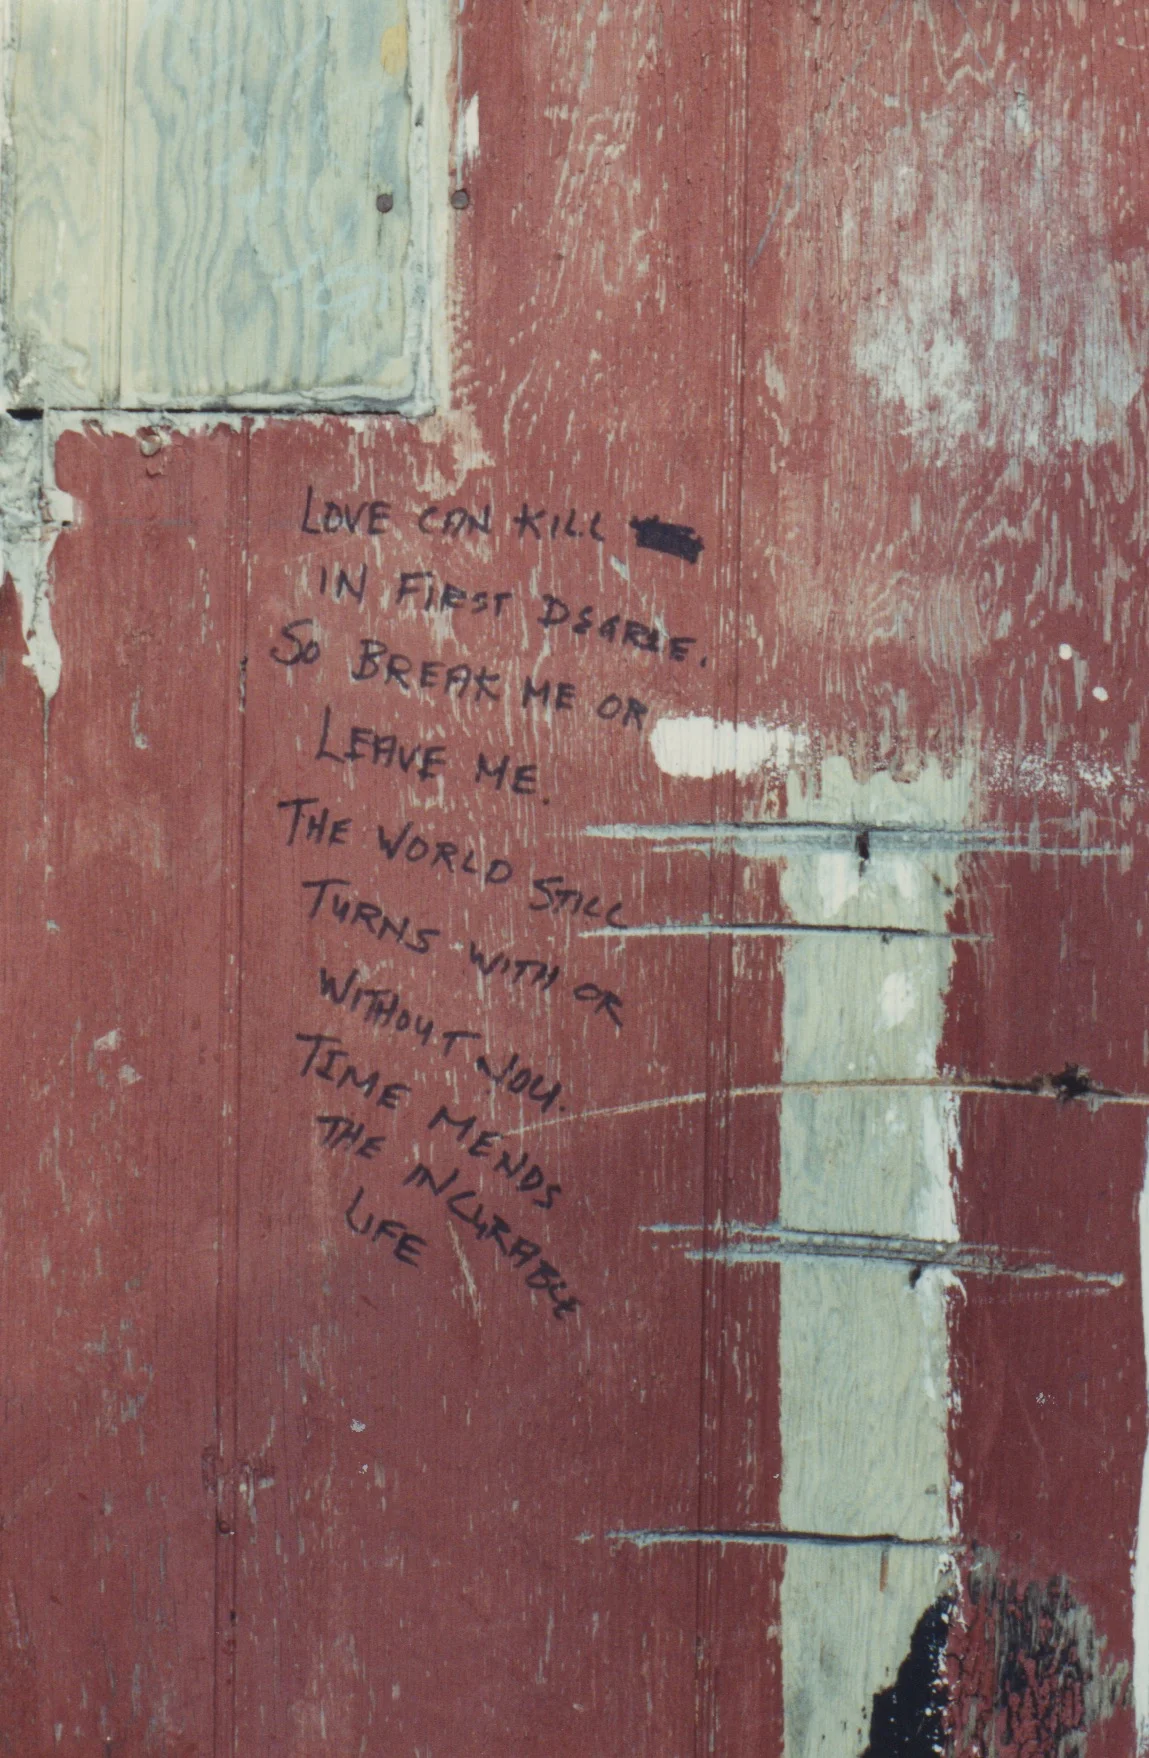 LOVE CAN KILL
IN FIRST DEGREE.
SO BREAK ME OR
LEAVE ME.
THE WORLD STILL
TURNS WITH OR
WITHOUT YOU.
TIME MENDS
THE INCURABLE
LIFE